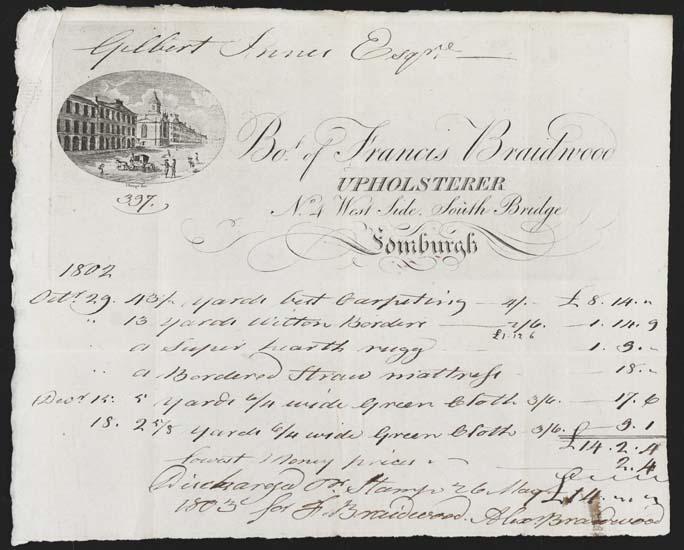 Gilbert Innes Esqre
Bot. of Francis Braidwood
UPHOLSTERER
No. 4 West Side, South Bridge
Edinburgh
337.
1802
Octr. 29. 43½ yards best Carpeting — 4/- — £8.14.„
„ 13 yards Wilton Borders — 2/6 — 1.14.9
£1.12.6
„ a Super hearth rugg — 1.3.„
„ a Bordered Straw mattress — 18.„
Decr. 15. 5 yards 6/4 wide Green Cloth 3/6. — 17.6
18. 2 5/8 yards 6/4 wide Green Cloth 3/6. — 9.1
£14.2.4
lowest Money prices — 2.4
£14.„.„
Discharged on Stamp 26 May
1803 for F. Braidwood. Alexr Braidwood